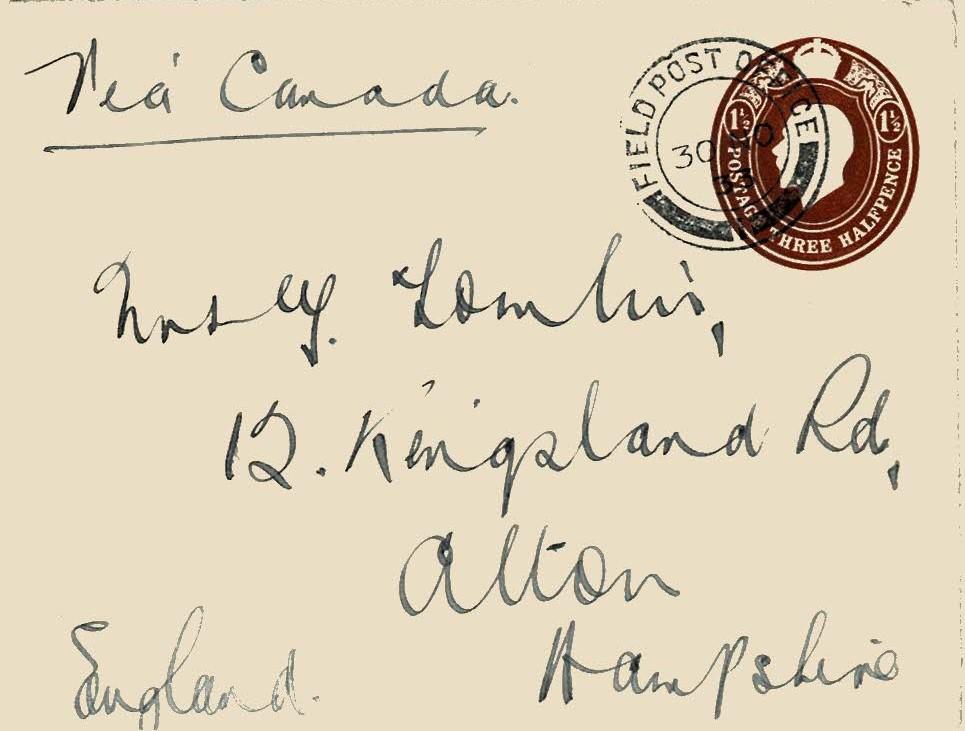 Via Canada.
FIELD POST OFFICE
30 NO
33
1½ 1½
POSTAGE
THREE HALFPENCE
Mrs Y. Tomlin,
12. Kingsland Rd,
Alton
Hampshire
England.